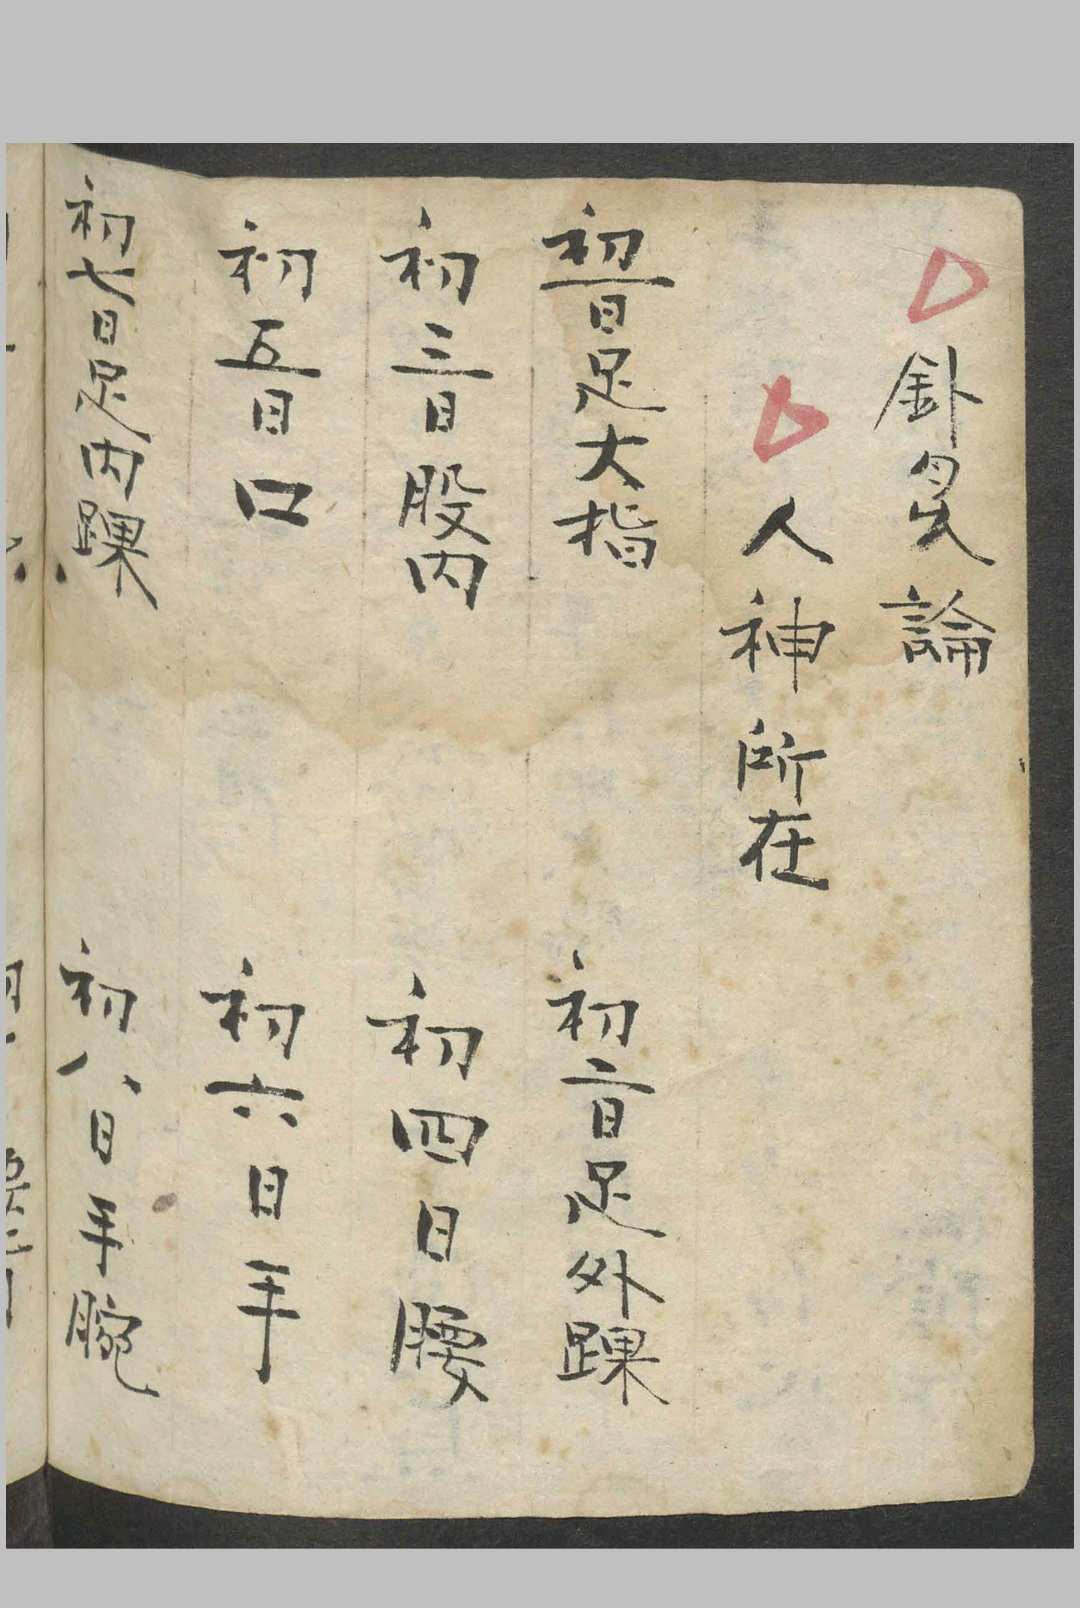 針灸論
人神所在
初一日足大指
初二日足外踝
初三日股内
初四日腰
初五日口
初六日手
初七日足内踝
初八日手腕